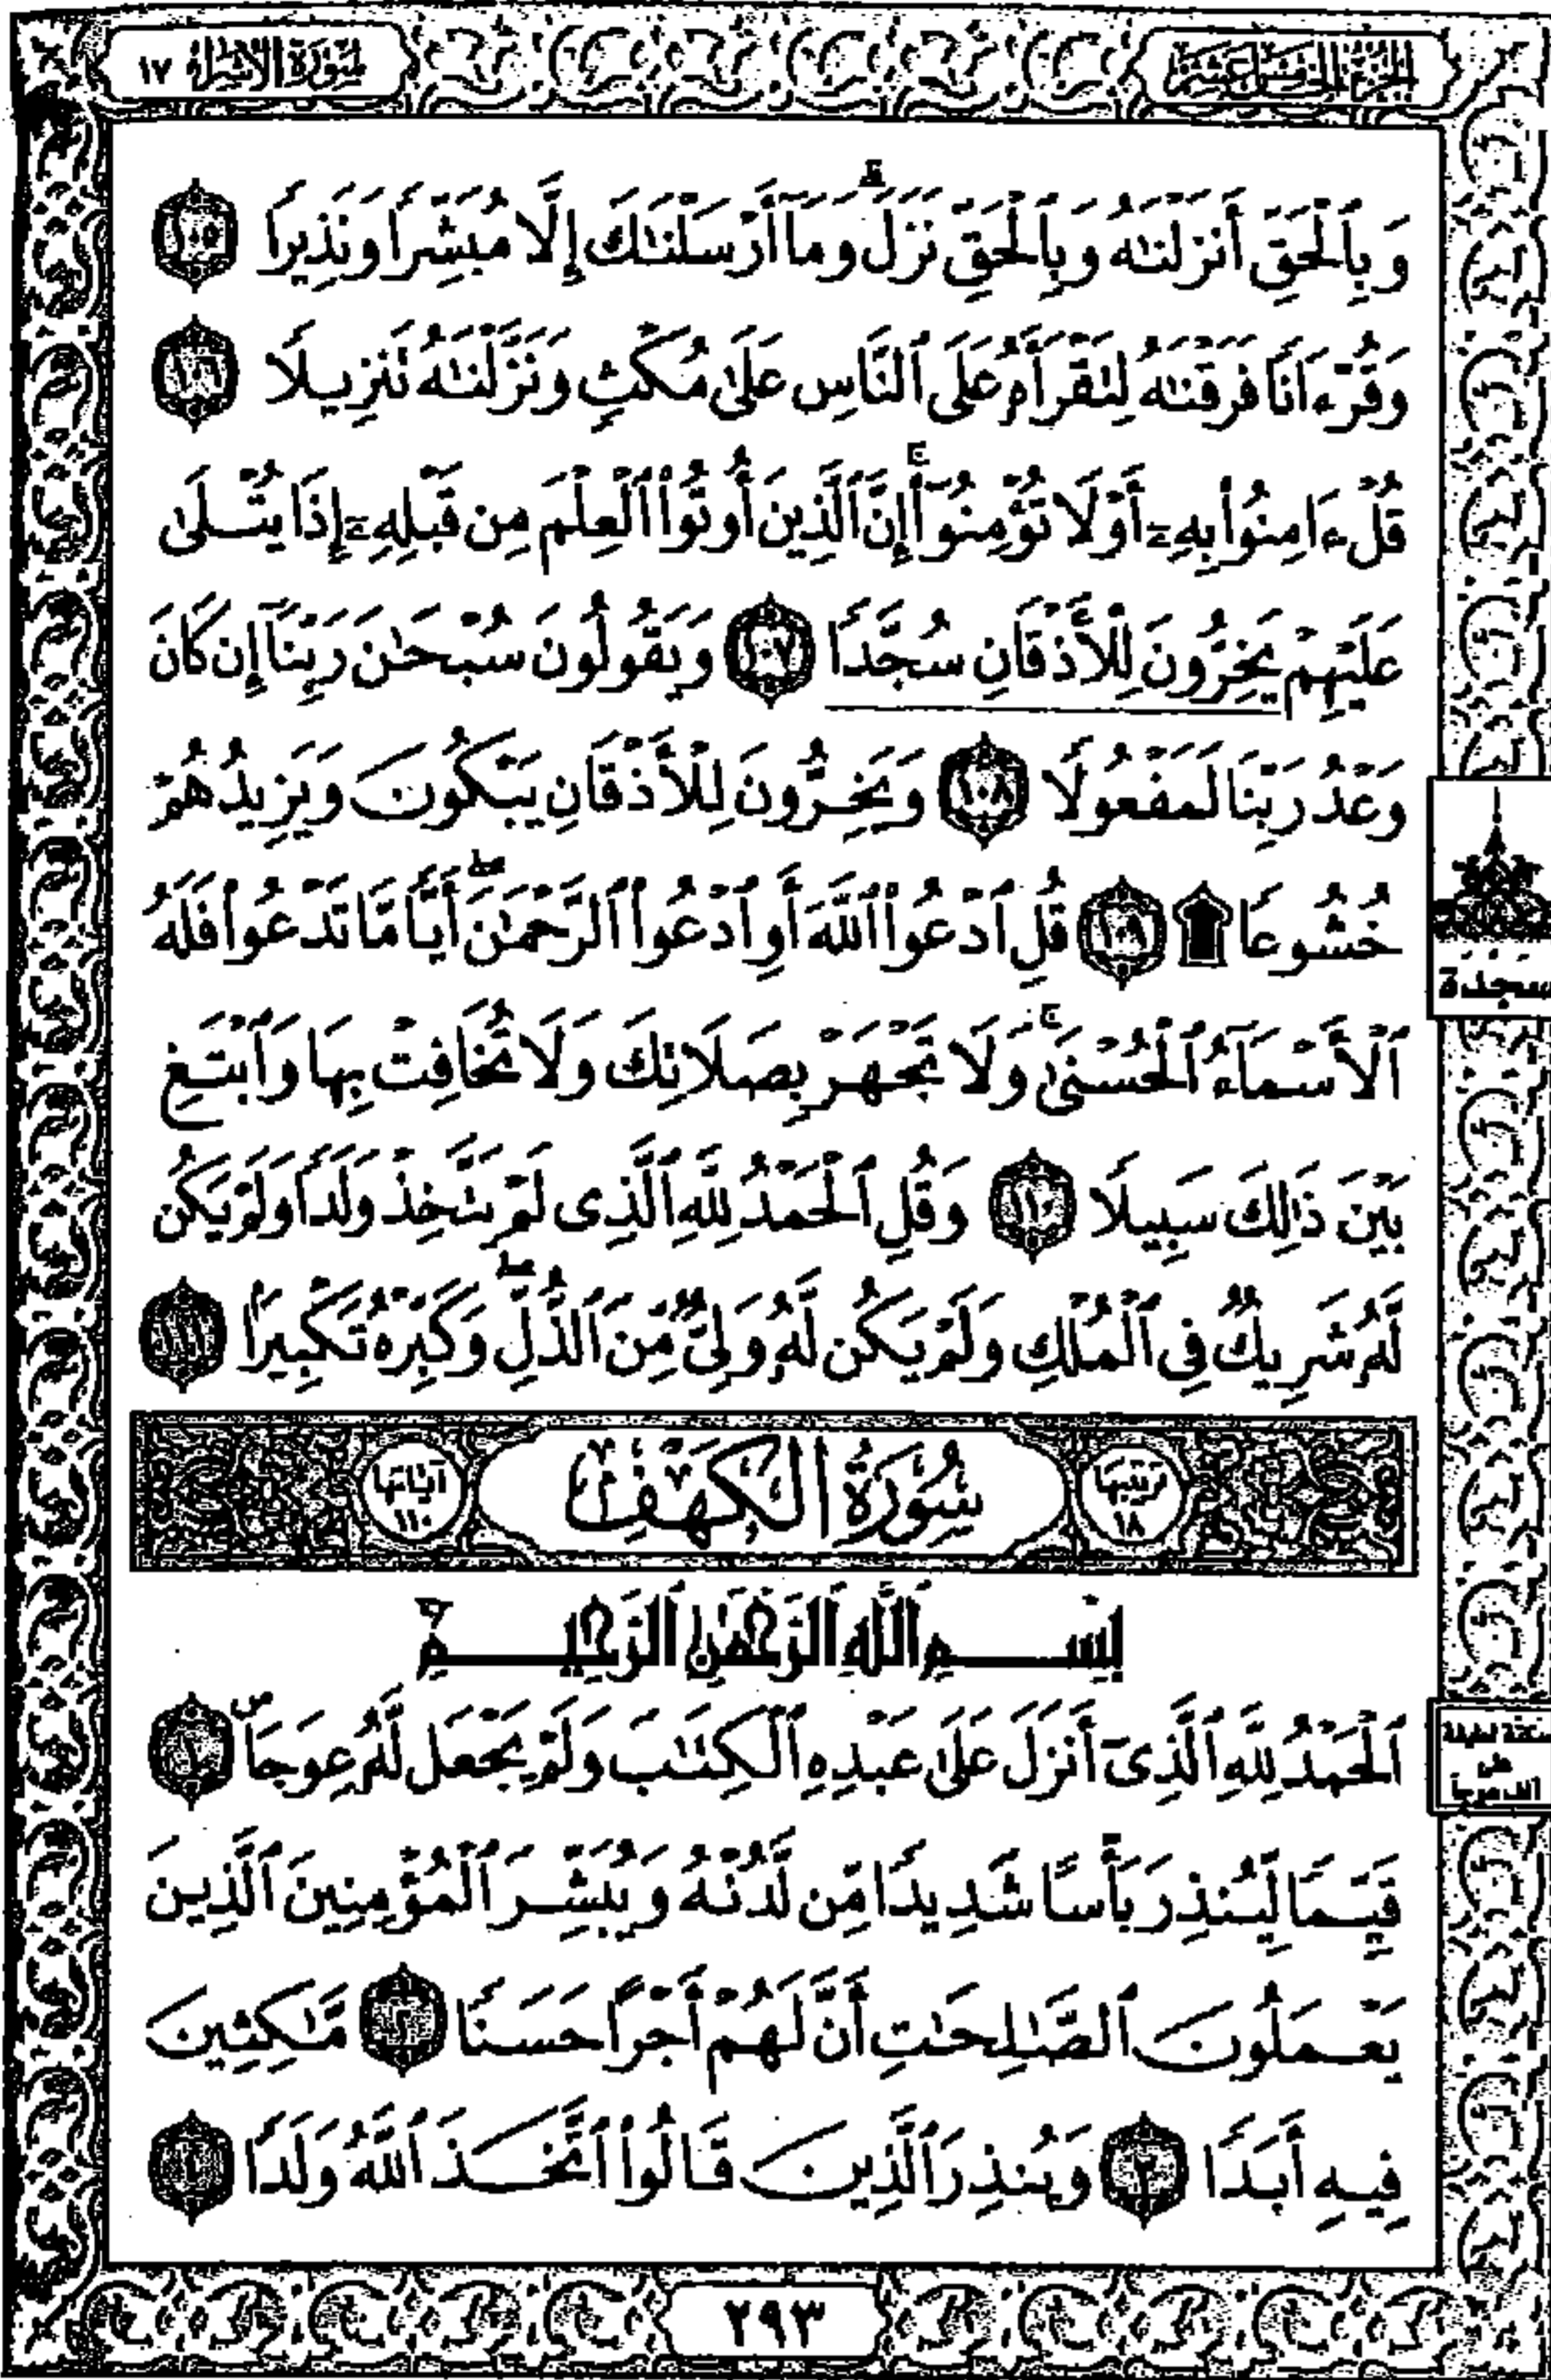 الجزء الخامس عشر
سورة الإسراء ١٧
وَبِٱلْحَقِّ أَنزَلْنَٰهُ وَبِٱلْحَقِّ نَزَلَ ۗ وَمَآ أَرْسَلْنَٰكَ إِلَّا مُبَشِّرًا وَنَذِيرًا ١٠٥
وَقُرْءَانًا فَرَقْنَٰهُ لِتَقْرَأَهُۥ عَلَى ٱلنَّاسِ عَلَىٰ مُكْثٍ وَنَزَّلْنَٰهُ تَنزِيلًا ١٠٦
قُلْ ءَامِنُوا۟ بِهِۦٓ أَوْ لَا تُؤْمِنُوٓا۟ ۚ إِنَّ ٱلَّذِينَ أُوتُوا۟ ٱلْعِلْمَ مِن قَبْلِهِۦٓ إِذَا يُتْلَىٰ
عَلَيْهِمْ يَخِرُّونَ لِلْأَذْقَانِ سُجَّدًا ١٠٧ وَيَقُولُونَ سُبْحَٰنَ رَبِّنَآ إِن كَانَ
وَعْدُ رَبِّنَا لَمَفْعُولًا ١٠٨ وَيَخِرُّونَ لِلْأَذْقَانِ يَبْكُونَ وَيَزِيدُهُمْ
خُشُوعًا ۩ ١٠٩ قُلِ ٱدْعُوا۟ ٱللَّهَ أَوِ ٱدْعُوا۟ ٱلرَّحْمَٰنَ ۖ أَيًّا مَّا تَدْعُوا۟ فَلَهُ
سجدة
ٱلْأَسْمَآءُ ٱلْحُسْنَىٰ ۚ وَلَا تَجْهَرْ بِصَلَاتِكَ وَلَا تُخَافِتْ بِهَا وَٱبْتَغِ
بَيْنَ ذَٰلِكَ سَبِيلًا ١١٠ وَقُلِ ٱلْحَمْدُ لِلَّهِ ٱلَّذِى لَمْ يَتَّخِذْ وَلَدًا وَلَمْ يَكُن
لَّهُۥ شَرِيكٌ فِى ٱلْمُلْكِ وَلَمْ يَكُن لَّهُۥ وَلِىٌّ مِّنَ ٱلذُّلِّ ۖ وَكَبِّرْهُ تَكْبِيرًۢا ١١١
ترتيبها ١٨ سُورَةُ الكَهْفِ آياتها ١١٠
بِسْمِ ٱللَّهِ ٱلرَّحْمَٰنِ ٱلرَّحِيمِ
ٱلْحَمْدُ لِلَّهِ ٱلَّذِىٓ أَنزَلَ عَلَىٰ عَبْدِهِ ٱلْكِتَٰبَ وَلَمْ يَجْعَل لَّهُۥ عِوَجَاۜ ١
سكتة لطيفة
على
ألف عوجا
قَيِّمًا لِّيُنذِرَ بَأْسًا شَدِيدًا مِّن لَّدُنْهُ وَيُبَشِّرَ ٱلْمُؤْمِنِينَ ٱلَّذِينَ
يَعْمَلُونَ ٱلصَّٰلِحَٰتِ أَنَّ لَهُمْ أَجْرًا حَسَنًا ٢ مَّٰكِثِينَ
فِيهِ أَبَدًا ٣ وَيُنذِرَ ٱلَّذِينَ قَالُوا۟ ٱتَّخَذَ ٱللَّهُ وَلَدًا ٤
٢٩٣